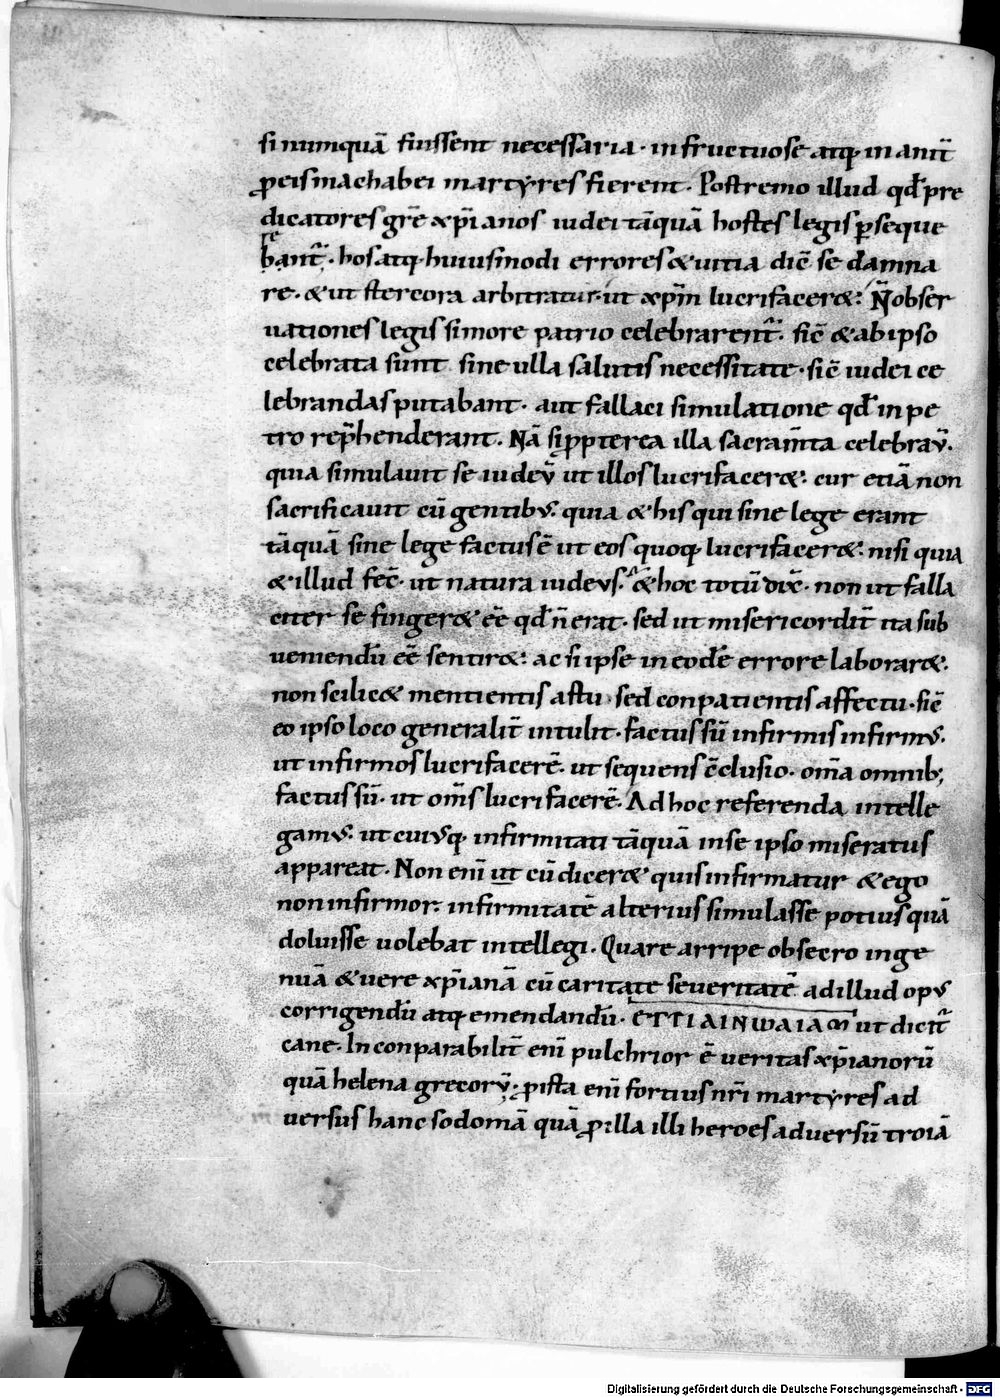 si numquā fuissent necessaria· infructuose atq; inanit̄
ꝓ eis machabei martyres fierent· Postremo illud qđ pre
dicatores gr̄e xp̄ianos iudei tāquā hostes legis ꝑseque
rebant᷑· hos atq; huiusmodi errores & uitia diē se damna
re· & ut stercora arbitratur· ut xp̄m lucrifacer&· Ñ obser
uationes legis si more patrio celebrarent᷑· sic̄ & ab ipso
celebrata sunt sine ulla salutis necessitate· sic̄ iudei ce
lebrandas putabant· aut fallaci simulatione qđ in pe
tro rep̄henderant· Nā si ꝓpterea illa sacram̄ta celebrauꝰ·
quia simulauit se iudeū ut illos lucrifacer&· cur etiā non
sacrificauit cū gentibꝰ· quia & his qui sine lege erant
tāquā sine lege factus ē ut eos quoq; lucrifacer&· nisi quia
& illud fec̄· ut natura iudeus· & hoc totū dix̄· non ut falla
citer se finger& eē̄ qđ n̄ erat· sed ut misericordit̄ ita sub
ueniendū eē̄ sentir&· ac si ipse in eodē errore laborar&·
non scilic& mentientis astu· sed conpatientis affectu· sic̄
eo ipso loco generalit̄ intulit· factus sū infirmis infirmꝰ·
ut infirmos lucrifacerē· ut sequens c̄clusio· om̄a omnib;
factus sū· ut om̄s lucrifacerē· Ad hoc referenda intelle
gamꝰ· ut cuiꝰq; infirmitati tāquā in se ipso miseratus
appareat· Non enī ut cū dicer& quis infirmatur & ego
non infirmor· infirmitatē alterius simulasse potius quā
doluisse uolebat intellegi· Quare arripe obsecro inge
nuā & uere xp̄ianā cū caritate seueritatē ad illud opꝰ
corrigendū atq; emendandū· ΕΤΤΙΑΙΝѠΑΙΑΜ ut dicit᷑
cane· Inconparabilit̄ enī pulchrior ē ueritas xp̄ianorū
quā helena grecorū· ꝓ ista enī fortius nr̄i martyres ad
uersus hanc sodomā quā ꝓ illa illi heroes aduersū troiā
Digitalisierung gefördert durch die Deutsche Forschungsgemeinschaft - DFG